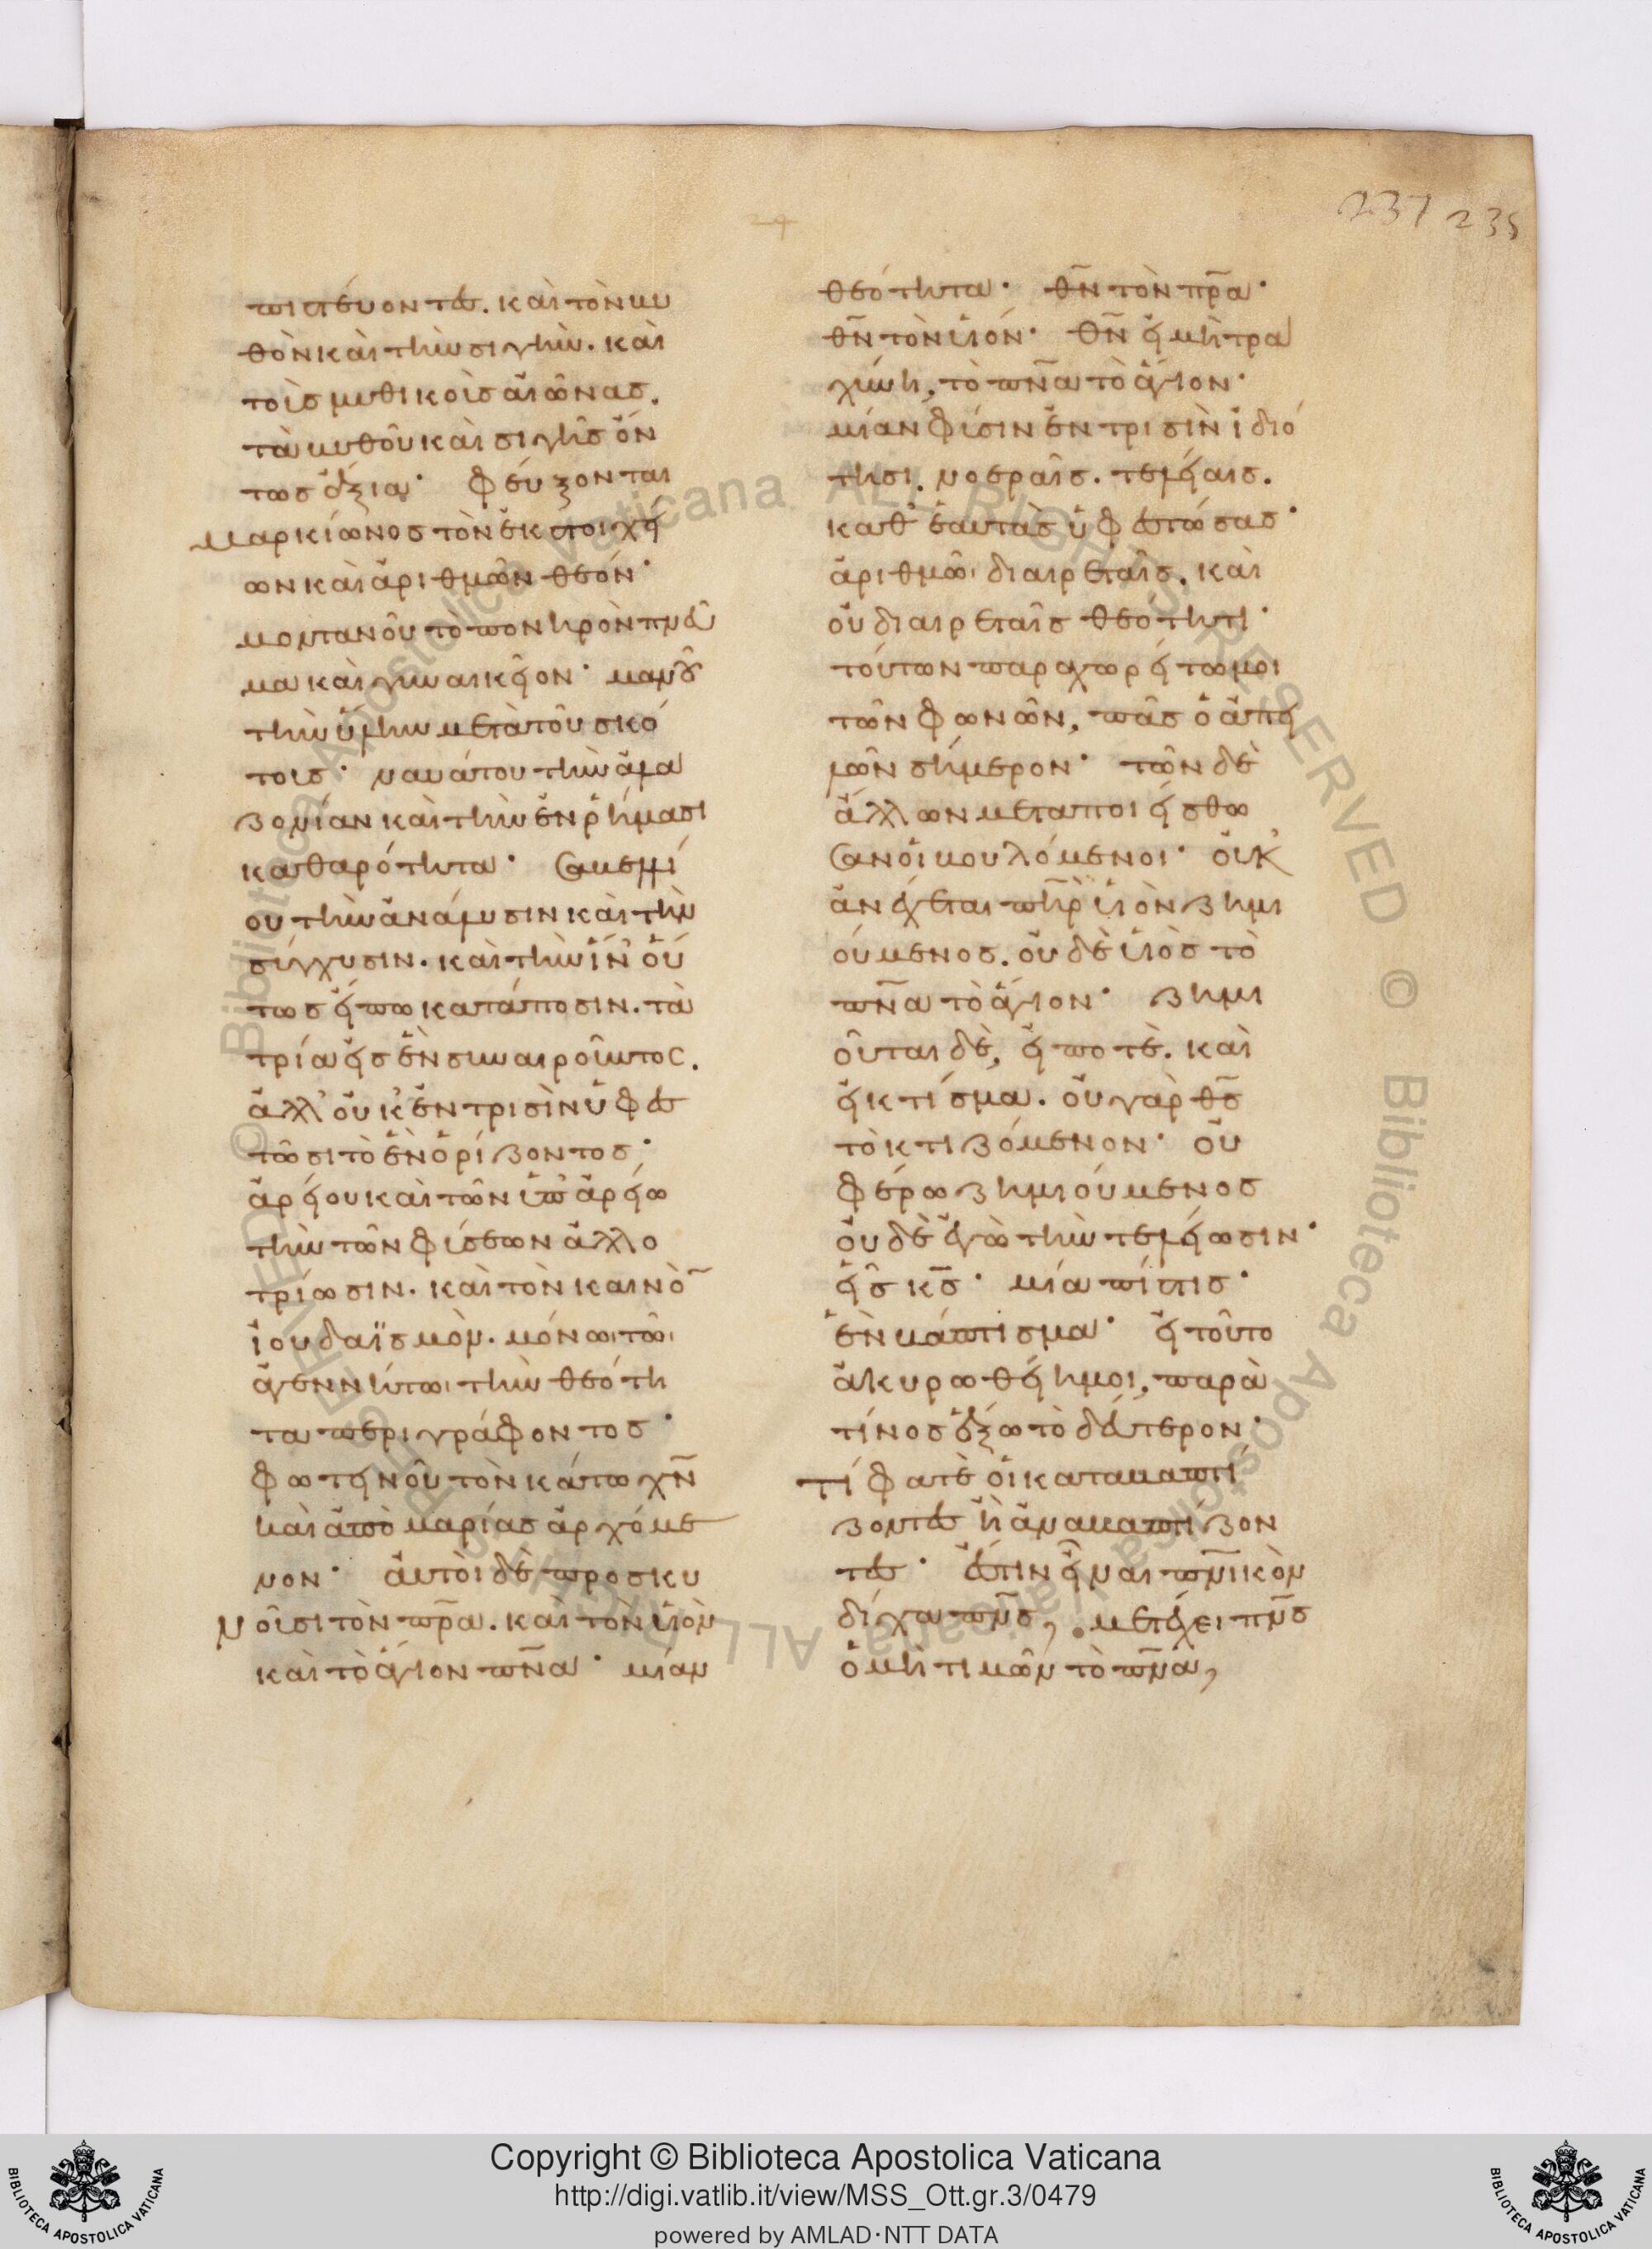 237 235
πιστεύοντες. καὶ τὸν βυ
θὸν καὶ τὴν σιγὴν. καὶ
τοὺς μυθικοὺς αἰῶνας.
τὰ βυθοῦ καὶ σιγῆς ὄν
τως ἄξια· φεύξονται
μαρκίωνος τὸν ἐκ στοιχεί
ων καὶ ἀριθμῶν θεόν·
μοντανοῦ τὸ πονηρὸν πνεῦ
μα καὶ γυναικεῖον· μανοῦ
τὴν ὕλην μετὰ τοῦ σκό
τους· ναυάτου τὴν ἀλα
ζονίαν καὶ τὴν ἐν ῥήμασι
καθαρότητα· σαβελλί
ου τὴν ἀνάλυσιν καὶ τὴν
σύγχυσιν. καὶ τὴν ἵν' οὕ
τως εἴπω κατάποσιν. τὰ
τρία εἰς ἓν συναιροῦντος.
ἀλλ' οὐκ ἐν τρισὶν ὑφεσ
τῶσι τὸ ἓν ὁρίζοντος·
ἀρείου καὶ τῶν ὑπ' ἀρείω
τὴν τῶν φύσεων ἀλλο
τρίωσιν. καὶ τὸν καινὸ̅
ἰουδαϊσμὸν. μόνωι τῶι
ἀγεννήτωι τὴν θεότη
τα περιγράφοντος·
φωτεινοῦ τὸν κάτω χ̅ν̅
καὶ ἀπὸ μαρίας ἀρχόμε
νον· αὐτοὶ δὲ προσκυ
νοῦσι τὸν π̅ρ̅α. καὶ τὸν υἱὸν
καὶ τὸ ἅγιον π̅ν̅α· μίαν
θεότητα· θ̅ν̅ τὸν π̅ρ̅α·
θ̅ν̅ τὸν υἱόν· θ̅ν̅ εἰ μὴ τρα
χύνηι, τὸ π̅ν̅α τὸ ἅγιον·
μίαν φύσιν ἐν τρισὶν ἰδιό
τησι. νοεραῖς. τελείαις.
καθ' ἑαυτὰς ὑφεστώσας·
ἀριθμῶι διαιρεταῖς. καὶ
οὐ διαιρεταῖς θεότητι·
τούτων παραχωρείτω μοι
τῶν φωνῶν, πᾶς ὁ ἀπει
λῶν σήμερον· τῶν δὲ
ἄλλων μεταποιείσθω
σαν οἱ βουλόμενοι· οὐκ
ἀνέχεται π̅η̅ρ̅ υἱὸν ζημι
ούμενος. οὐδὲ υἱὸς τὸ
π̅ν̅α τὸ ἅγιον· ζημι
οῦται δὲ, εἴποτέ. καὶ
εἰ κτίσμα. οὐ γὰρ θ̅ς̅
τὸ κτιζόμενον· οὐ
φέρω ζημιούμενος
οὐδὲ ἐγὼ τὴν τελείωσιν·
εἷς κ̅ς̅· μία πίστις·
ἓν βάπτισμα· εἰ τοῦτο
ἀκυρωθείη μοι, παρὰ
τίνος ἕξω τὸ δεύτερον·
τί φατὲ οἱ καταβαπτί
ζοντες ἢ ἀναβαπτίζον
τες· ἔστιν εἶναι π̅ν̅ικὸν
δίχα π̅ν̅ς, μετέχει π̅ν̅ς
ὁ μὴ τιμῶν τὸ π̅ν̅α,
© Biblioteca Apostolica Vaticana ALL RIGHTS RESERVED © Biblioteca Apostolica Vaticana ALL RIGHTS RESERVED
Copyright © Biblioteca Apostolica Vaticana
http://digi.vatlib.it/view/MSS_Ott.gr.3/0479
powered by AMLAD·NTT DATA
BIBLIOTECA APOSTOLICA VATICANA
BIBLIOTECA APOSTOLICA VATICANA